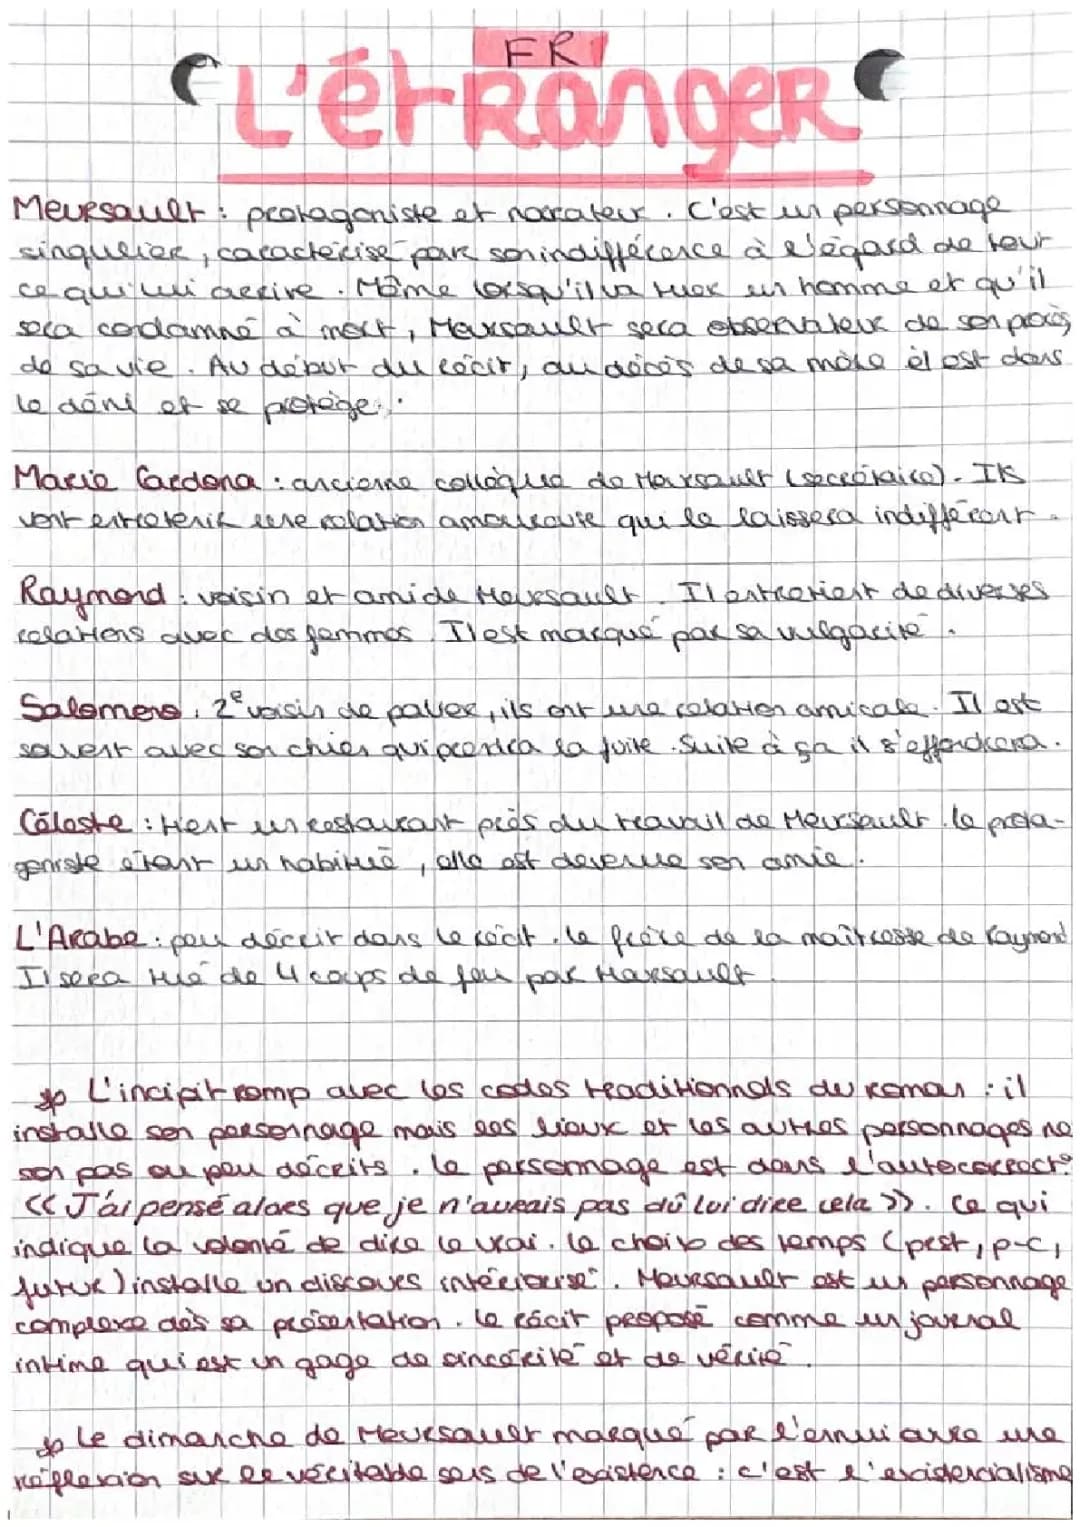 FR
L'étRangeR
Meursault : protagoniste et narrateur. C'est un personnage
singulier, caractérisé par son indifférence à l'égard de tout
ce qui lui arrive. Même lorsqu'il va tuer un homme et qu'il
sera condamné à mort, Meursault sera observateur de son procès
de sa vie. Au début du récit, au décès de sa mère il est dans
le déni et se protège.
Marie Cardona : ancienne collègue de Meursault (secrétaire). Ils
vont entretenir une relation amoureuse qui le laissera indifférent.
Raymond : voisin et ami de Meursault. Il entretient de diverses
relations avec des femmes. Il est marqué par sa vulgarité.
Salamano : 2e voisin de palier, ils ont une relation amicale. Il est
souvent avec son chien qui prendra la fuite. Suite à ça il s'effondrera.
Céleste : tient un restaurant près du travail de Meursault. le prota-
goniste étant un habitué, elle est devenue son amie.
L'Arabe : peu décrit dans le récit. le frère de la maîtresse de Raymond
Il sera tué de 4 coups de feu par Meursault.
L'incipit romp avec les codes traditionnels du roman : il
installe son personnage mais les lieux et les autres personnages ne
son pas ou peu décrits. le personnage est dans l'autocorrect°
<< J'ai pensé alors que je n'aurais pas dû lui dire cela >>. Ce qui
indique la volonté de dire le vrai. le choix des temps (prst, p-c,
futur) installe un discours intériorisé. Meursault est un personnage
complexe dès sa présentation. le récit proposé comme un journal
intime qui est un gage de sincérité et de vérité.
Le dimanche de Meursault marqué par l'ennui ouvre une
réflexion sur le véritable sens de l'existence : c'est l'existencialisme